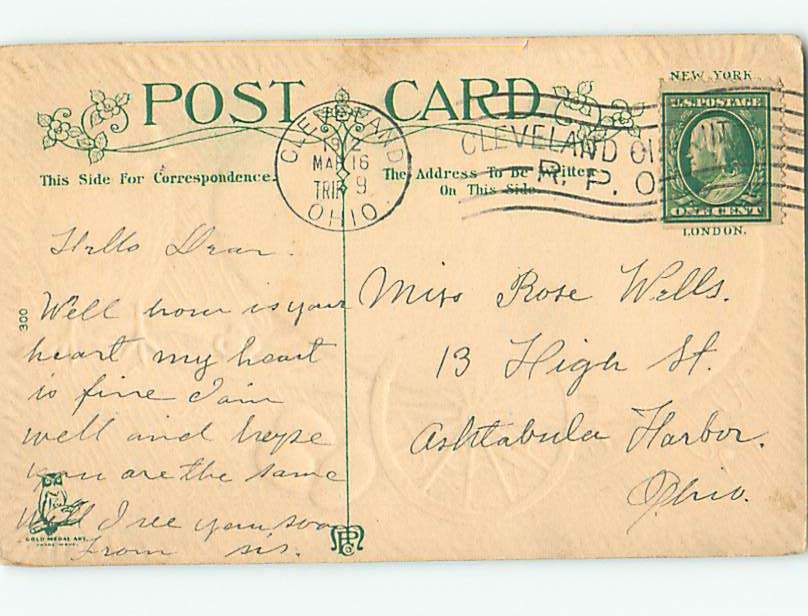 POST CARD
NEW YORK
U.S. POSTAGE
ONE CENT
LONDON.
CLEVELAND
MAR 16
TRIP 9
OHIO
CLEVELAND
R. P. O.
This Side For Correspondence.
The Address To Be Written
On This Side
Hello Dear.
Well how is your
heart my heart
is fine I am
well and hope
you are the same
Well I see you soon
From sis.
300
Miss Rose Wells.
13 High St.
Ashtabula Harbor.
Ohio.
GOLD MEDAL ART.
TRADE MARK.